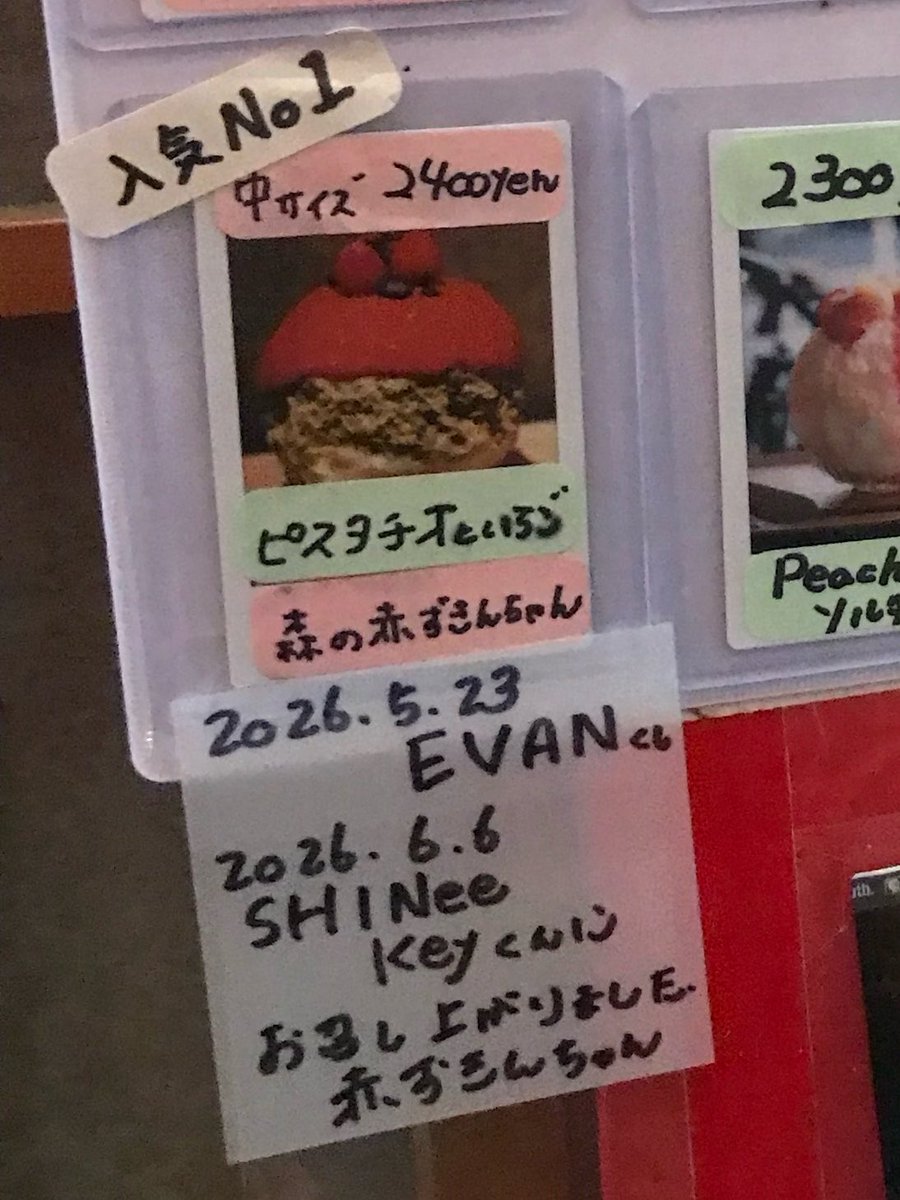 人気No1
中サイズ 2400yen
ピスタチオといちご
森の赤ずきんちゃん
2300
Peach
ソルダ
2026.5.23
EVANくん
2026.6.6
SHINee
Keyくんに
お召し上がりました
赤ずきんちゃん